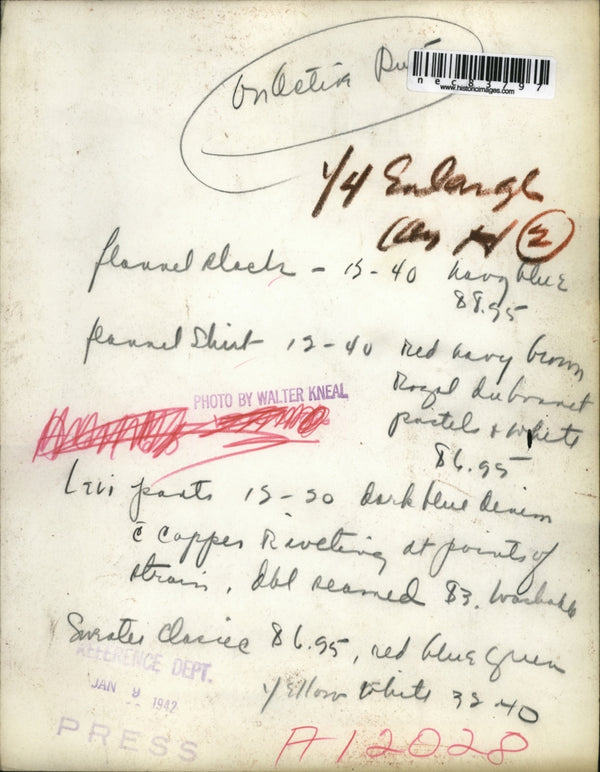 On Active Dut
nec83797
www.historicimages.com
1/4 Enlarge
(2)
flannel slack - 12-40 navy blue
$8.95
flannel Shirt 12-40 red navy brown
Royal dubonnet
pastels + white
$6.95
PHOTO BY WALTER KNEAL
Levi pants 12-20 dark blue denim
c̄ copper Riveting at points of
strain, dbl seamed $3. washable
Sweater classic $6.95, red blue green
yellow white 32-40
REFERENCE DEPT.
JAN 9 1942
PRESS
A12028